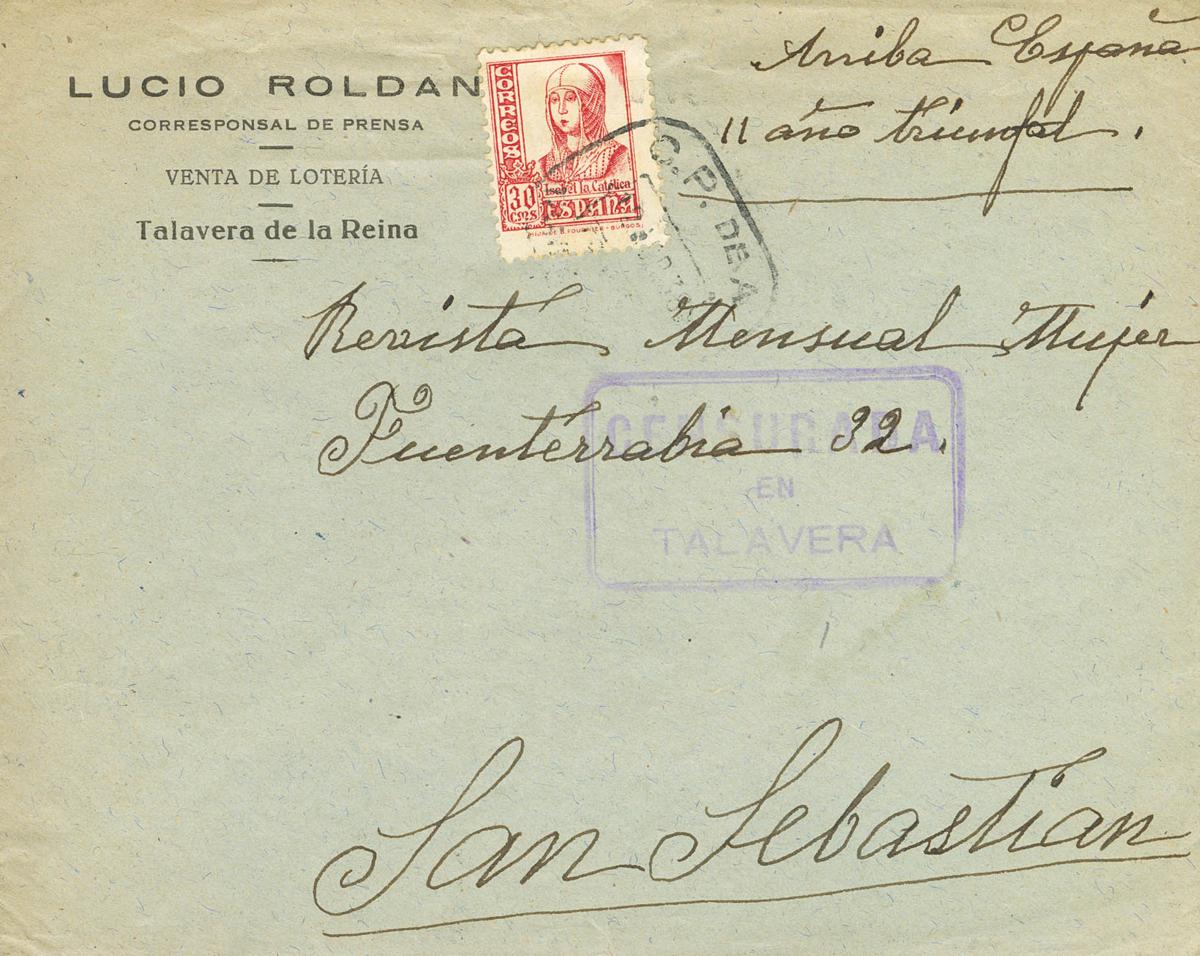 LUCIO ROLDAN
CORRESPONSAL DE PRENSA
VENTA DE LOTERÍA
Talavera de la Reina
CORREOS
30 CMS
Isabel la Católica
ESPAÑA
HIJOS DE H. FOURNIER - BURGOS
C.P. DE A
Arriba España
11 año triunfal.
Revista Mensual Mujer
Fuenterrabia 32.
CENSURADA
EN
TALAVERA
San Sebastian